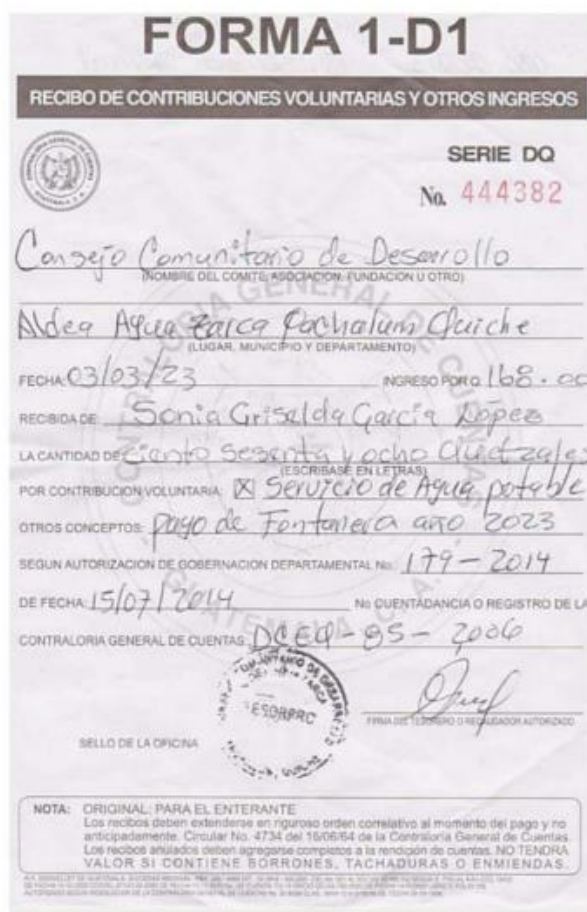 FORMA 1-D1
RECIBO DE CONTRIBUCIONES VOLUNTARIAS Y OTROS INGRESOS
SERIE DQ
No. 444382
Consejo Comunitario de Desarrollo
(NOMBRE DEL COMITE, ASOCIACION, FUNDACION U OTRO)
Aldea Agua Zarca Pachalum Quiche
(LUGAR, MUNICIPIO Y DEPARTAMENTO)
FECHA: 03/03/23 INGRESO POR Q 168.00
RECIBIDA DE Sonia Griselda García López
LA CANTIDAD DE Ciento sesenta y ocho Quetzales
(ESCRIBASE EN LETRAS)
POR CONTRIBUCION VOLUNTARIA: X Servicio de Agua potable
OTROS CONCEPTOS: pago de Fontanero año 2023
SEGUN AUTORIZACION DE GOBERNACION DEPARTAMENTAL No. 179-2014
DE FECHA 15/07/2014 No CUENTADANCIA O REGISTRO DE LA
CONTRALORIA GENERAL DE CUENTAS: DCEQ-85-2006
FIRMA DEL TESORERO O RECAUDADOR AUTORIZADO
SELLO DE LA OFICINA
NOTA: ORIGINAL: PARA EL ENTERANTE
Los recibos deben extenderse en riguroso orden correlativo al momento del pago y no
anticipadamente. Circular No. 4734 del 16/06/64 de la Contraloría General de Cuentas.
Los recibos anulados deben agregarse completos a la rendición de cuentas. NO TENDRA
VALOR SI CONTIENE BORRONES, TACHADURAS O ENMIENDAS.